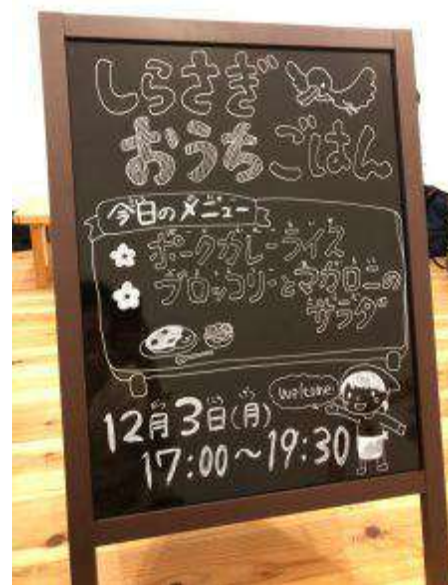 しらさぎ
おうちごはん
今日のメニュー
ポークカレーライス
ブロッコリーとマカロニーの
サラダ
Welcome!
12月3日(月)
17:00～19:30